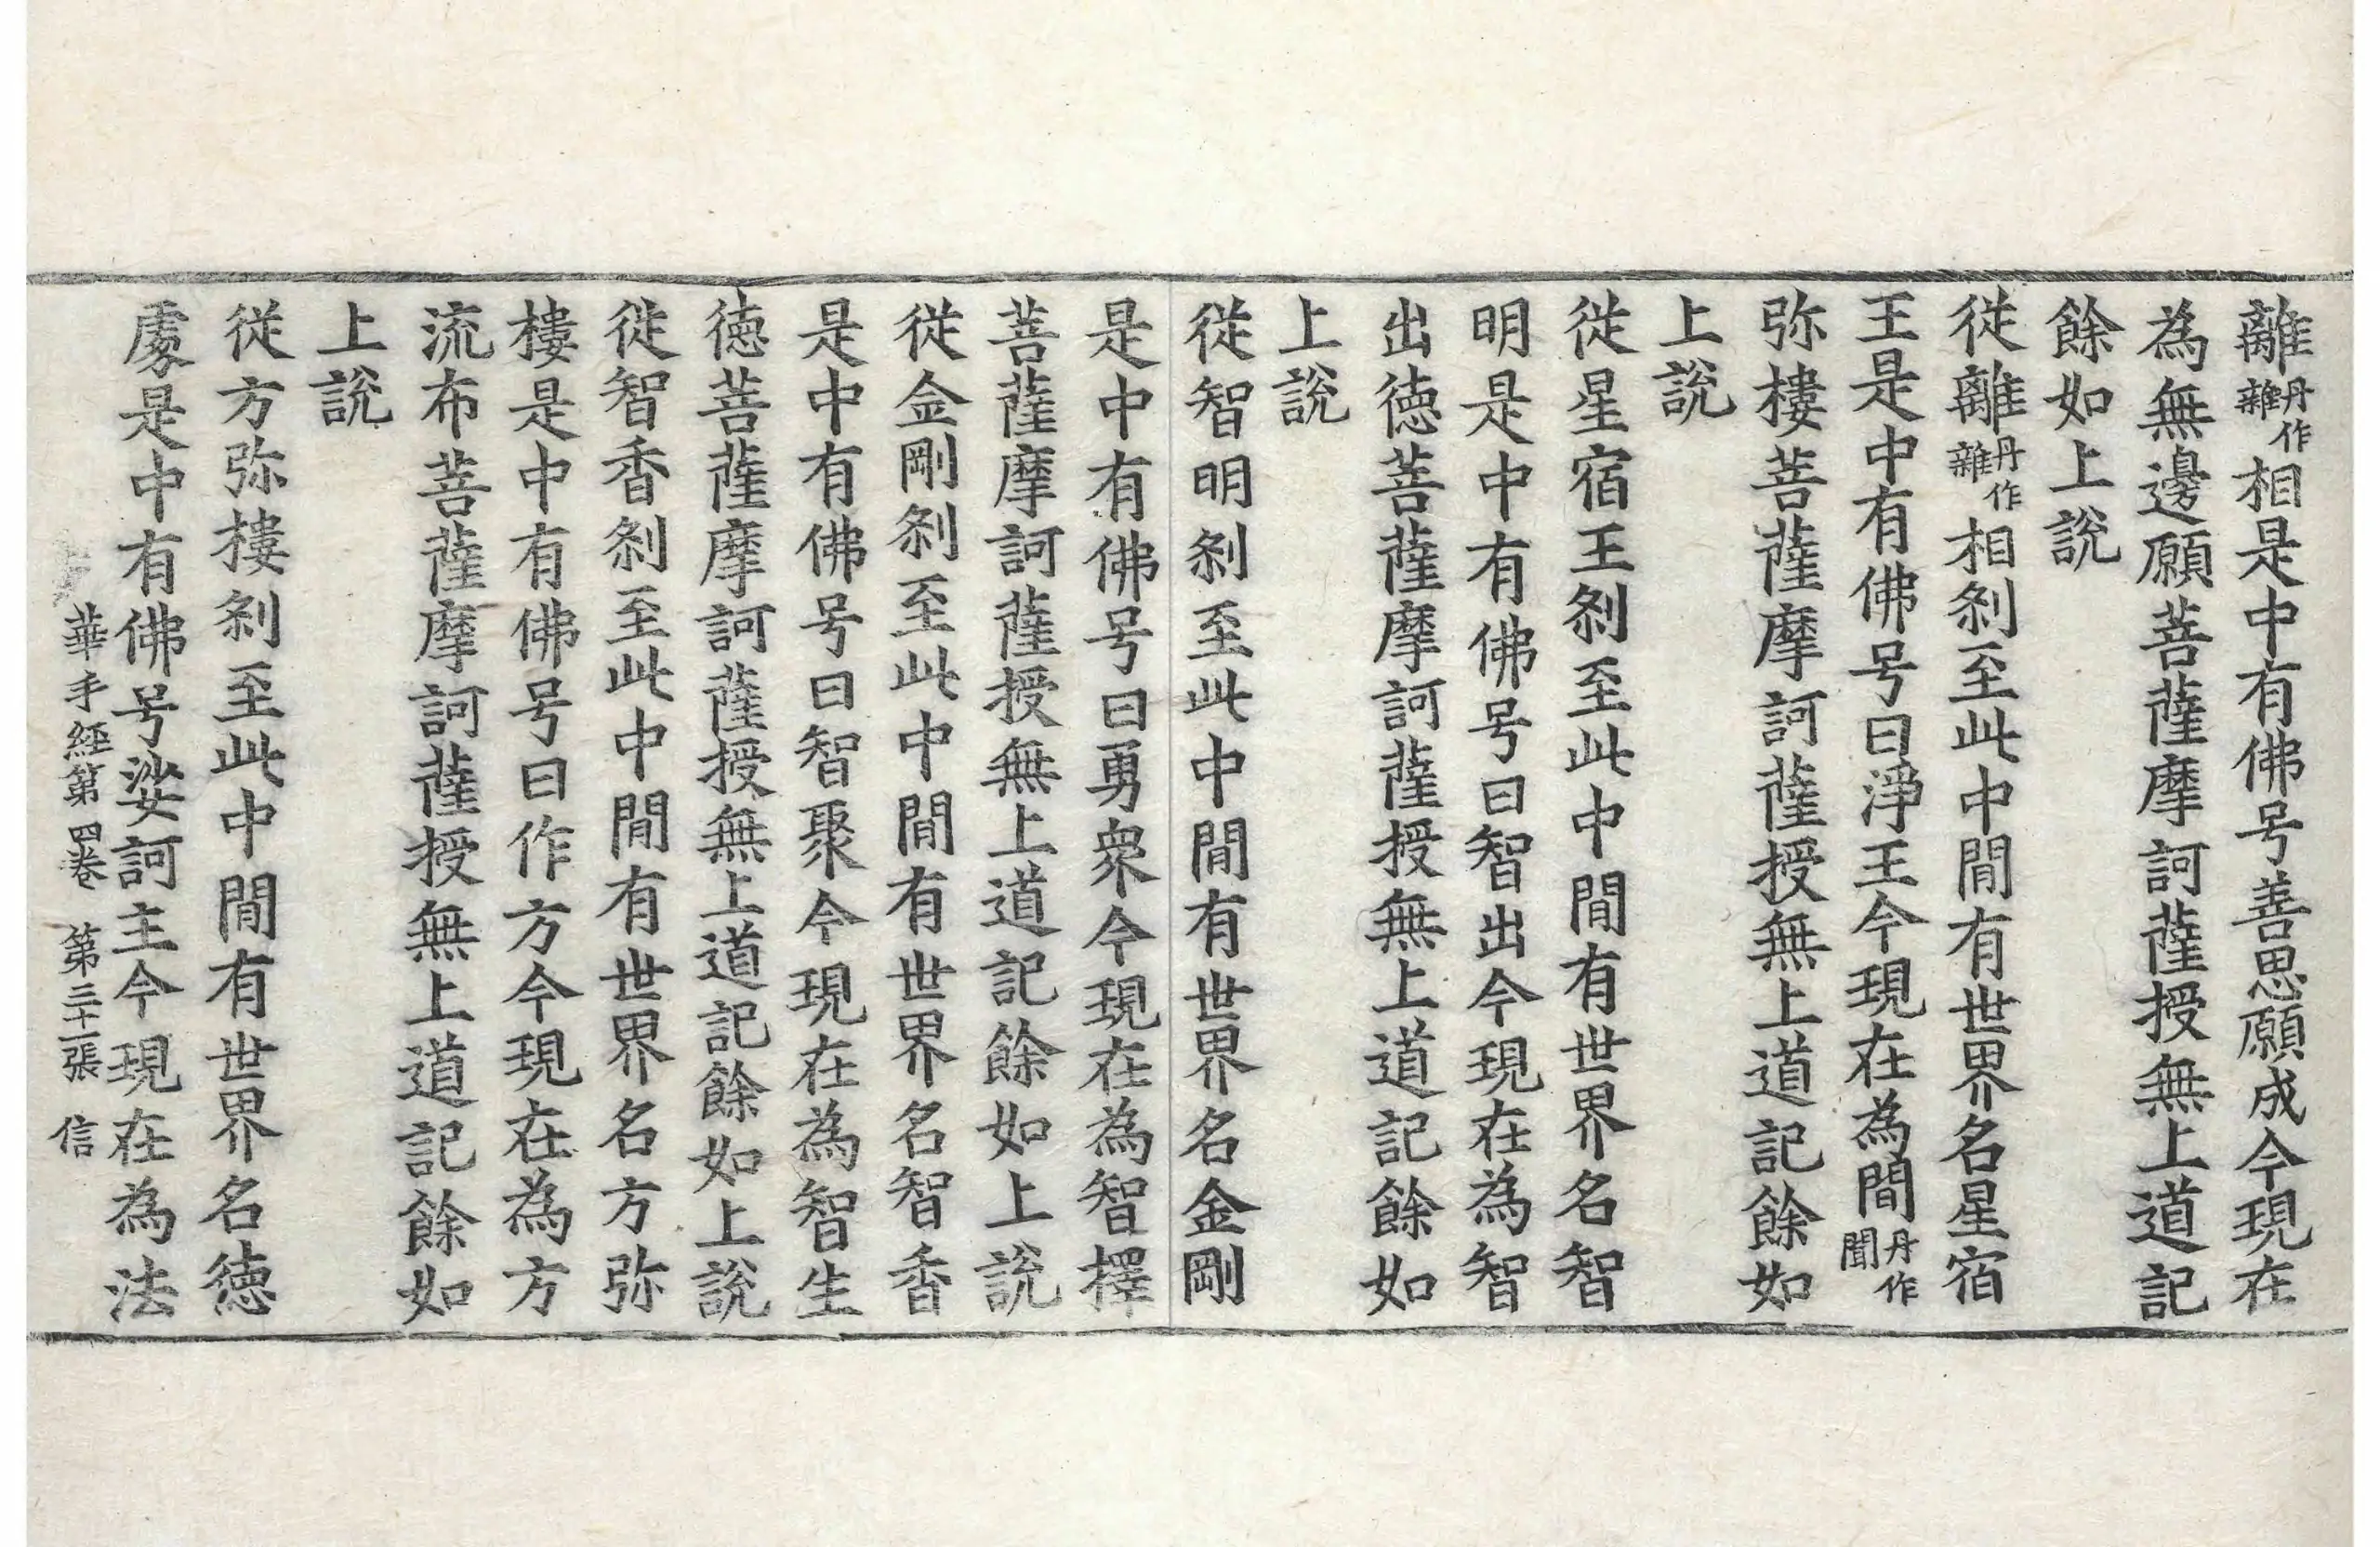 離丹作雜相是中有佛号善思願成今現在
為無邊願菩薩摩訶薩授無上道記
餘如上說
從離丹作雜相刹至此中間有世界名星宿
王是中有佛号曰淨王今現在為間丹作聞
弥樓菩薩摩訶薩授無上道記餘如
上說
從星宿王刹至此中間有世界名智
明是中有佛号曰智出今現在為智
出德菩薩摩訶薩授無上道記餘如
上說
從智明刹至此中間有世界名金剛
是中有佛号曰勇衆今現在為智擇
菩薩摩訶薩授無上道記餘如上說
從金剛刹至此中間有世界名智香
是中有佛号曰智聚今現在為智生
德菩薩摩訶薩授無上道記餘如上說
從智香刹至此中間有世界名方弥
樓是中有佛号曰作方今現在為方
流布菩薩摩訶薩授無上道記餘如
上說
從方弥樓刹至此中間有世界名德
處是中有佛号娑訶主今現在為法
華手經第四卷 第三十一張 信